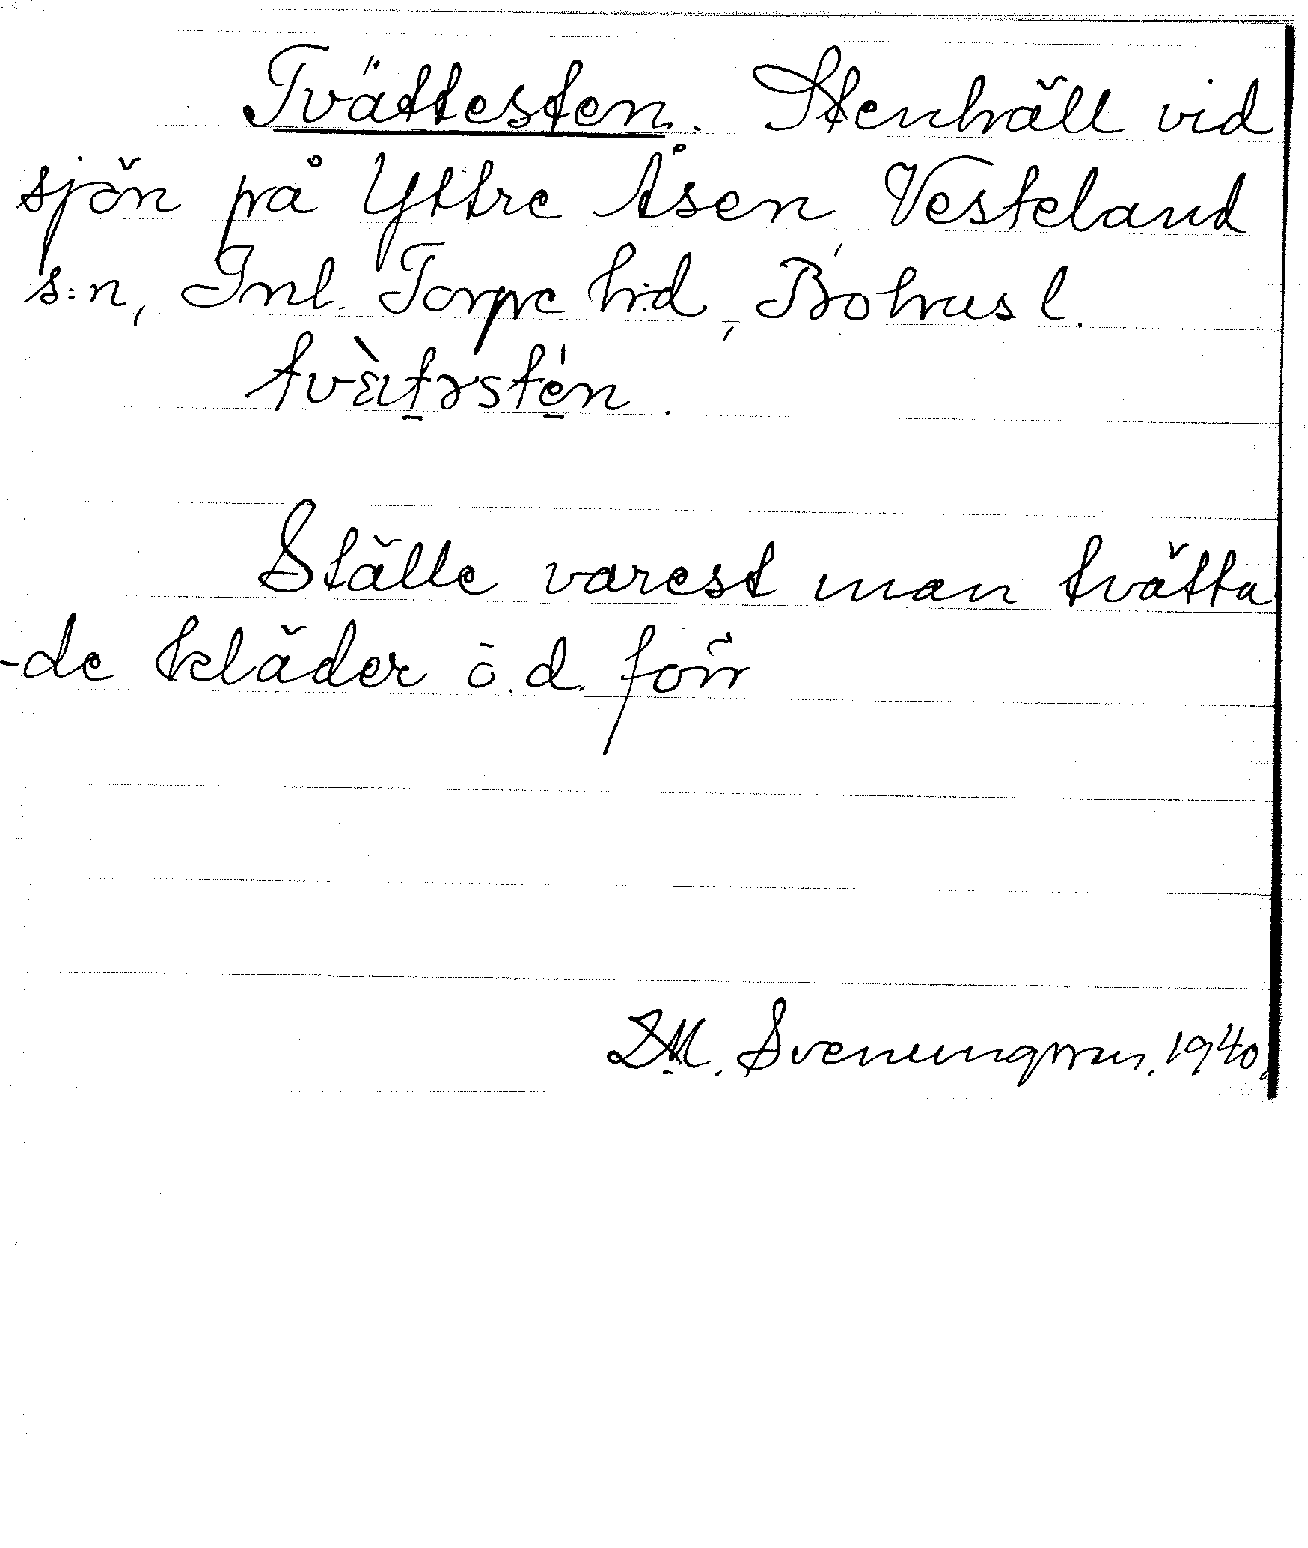 Tvättesten. Stenhäll vid
sjön på Yttre Åsen, Vesteland
s:n, Inl. Torpe h:d, Bohusl.
tvæ̀təstén.
Ställe varest man tvätta
-de kläder o. d. förr
Svenungsson. 1940.